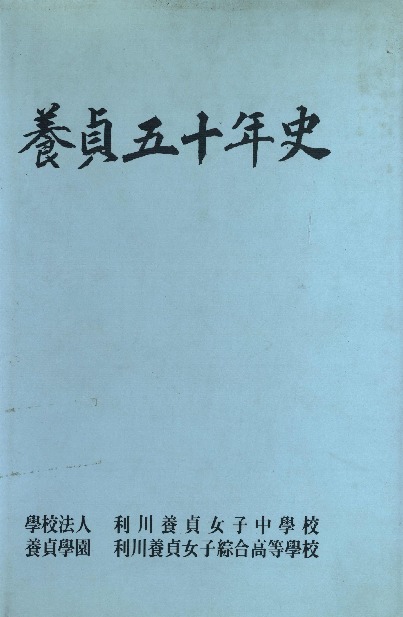 養貞五十年史
學校法人 利川養貞女子中學校
養貞學園 利川養貞女子綜合高等學校